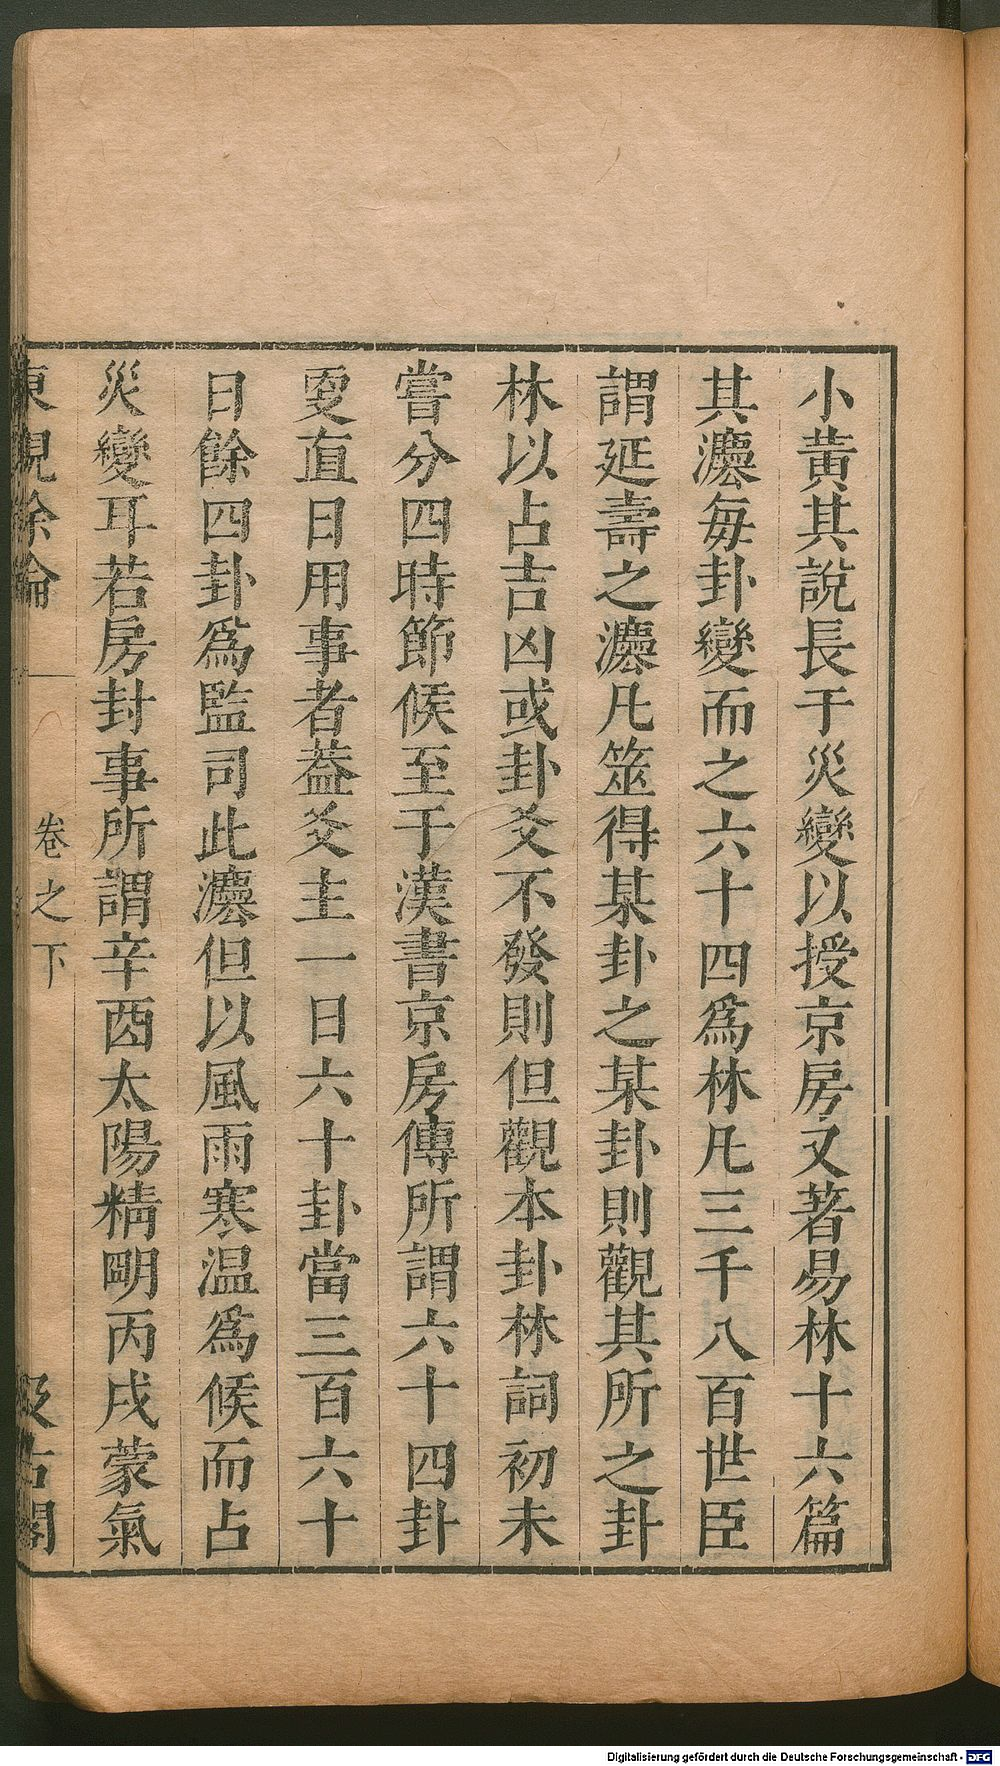 小黃其說長于災變以授京房又著易林十六篇
其灋每卦變而之六十四爲林凡三千八百世臣
謂延壽之灋凡筮得某卦之某卦則觀其所之卦
林以占吉凶或卦爻不發則但觀本卦林詞初未
嘗分四時節候至于漢書京房傳所謂六十四卦
更直日用事者葢爻主一日六十卦當三百六十
日餘四卦爲監司此灋但以風雨寒温爲候而占
災變耳若房封事所謂辛酉太陽精明丙戌蒙氣
東觀餘論 卷之下 汲古閣
Digitalisierung gefördert durch die Deutsche Forschungsgemeinschaft - DFG